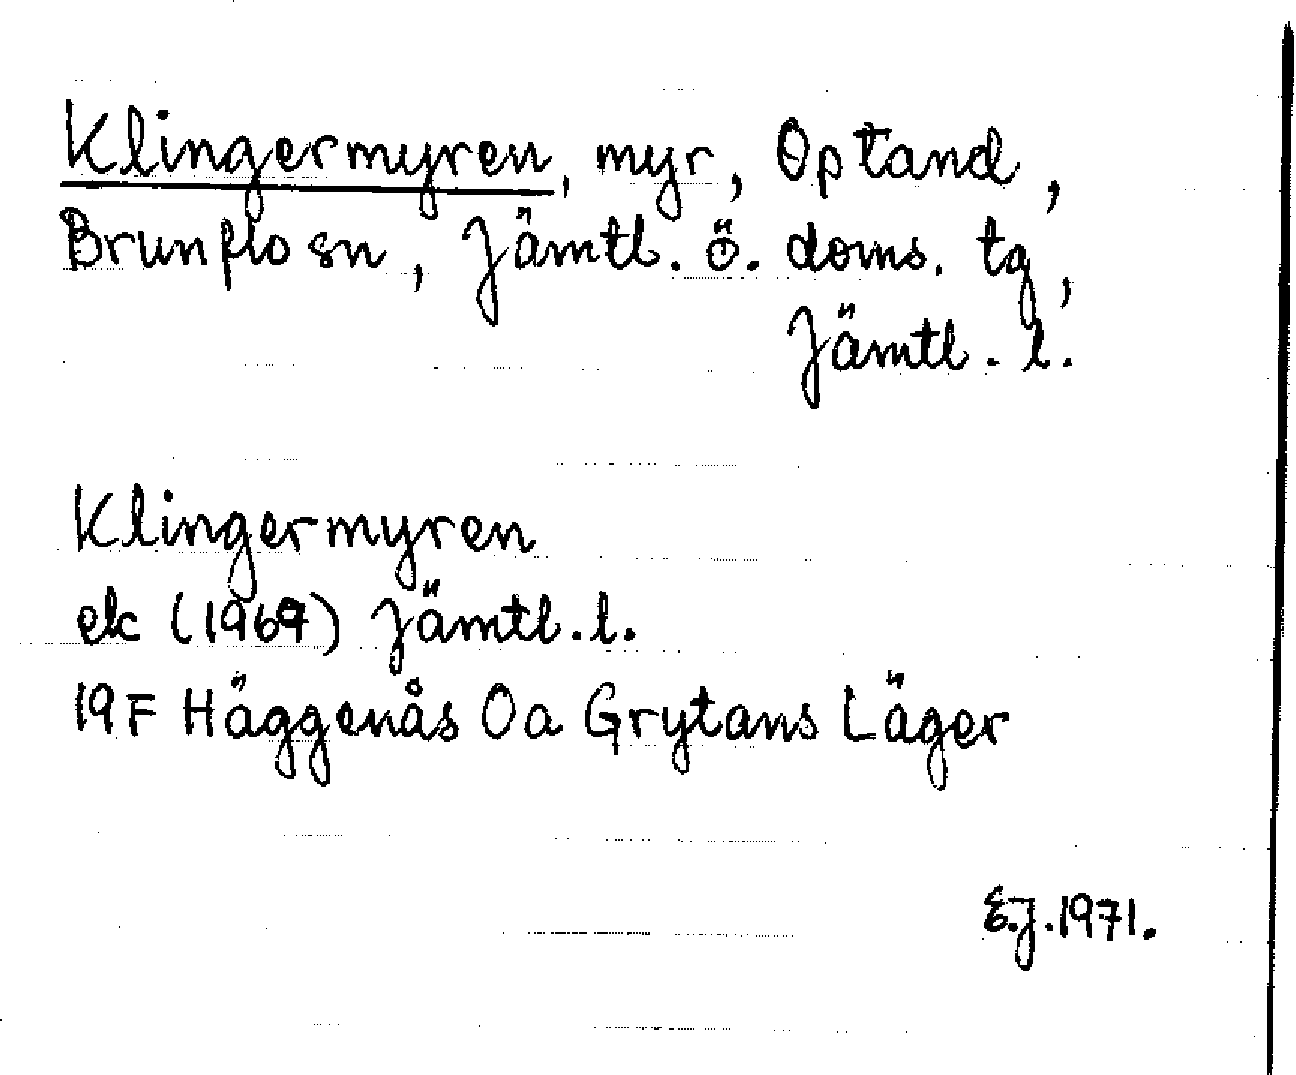 Klingermyren, myr, Optand,
Brunflo sn, Jämtl. ö. doms. tg,
Jämtl. l.
Klingermyren
ek (1969) Jämtl. l.
19F Häggenås 0a Grytans Läger
E.J. 1971.